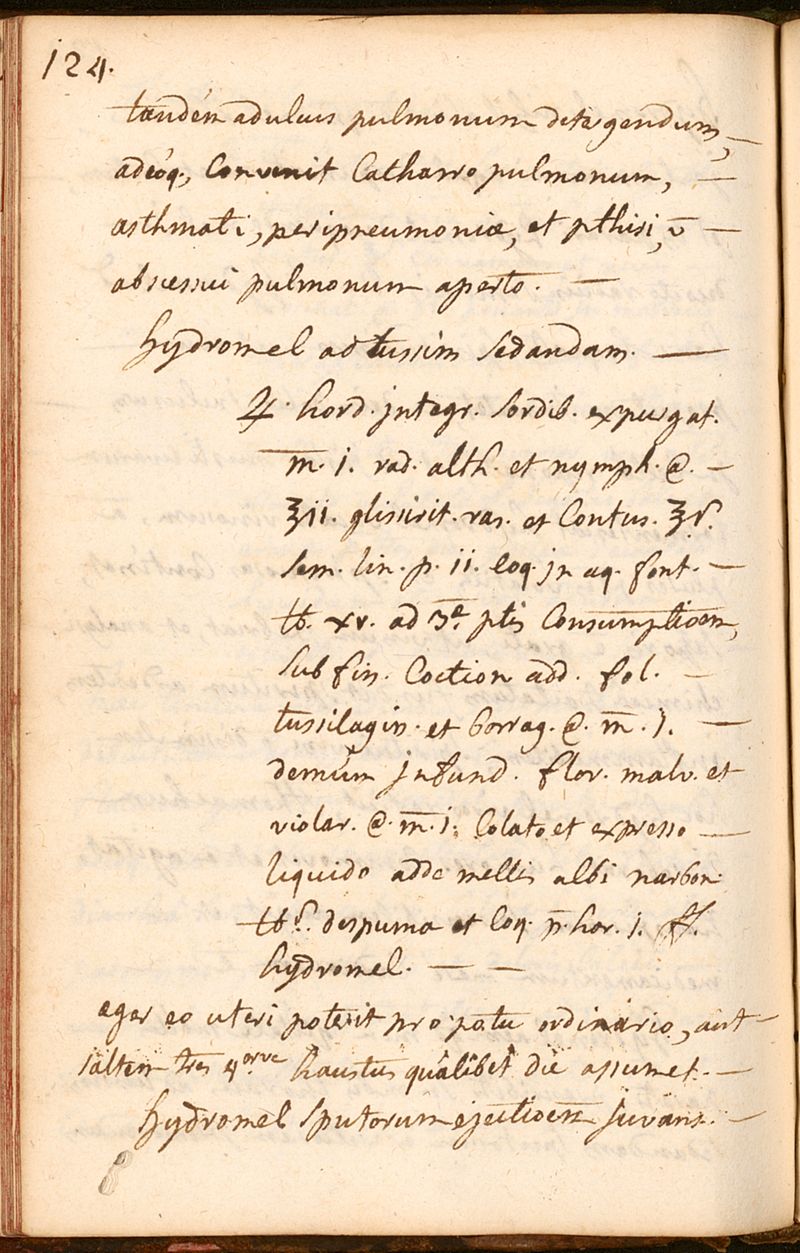 124.
tandém ad ulcus pulmonum detergendum, —
adeóq., Convenit Catharro pulmonum, —
asthmati, peripneumoniæ, et pthisi, —
abscessui pulmonum aperto. —
hydromel ad tussim sedandam. —
♃. hord. jntegr. sordib. expurgat.
m̄. j. rad. alth. et nymph. @. —
ʒii. glissirit. ras. et Contus. ʒſ.
sem. lin. p. ii. Coq. jn aq. font. —
℔. xv. ad 3.ᵃ ptis Consumptioem,
sub fin. Coction add. fol. —
tussilagin. et borrag. @. m̄. j. —
demúm jnfund. flor. malv. et
violar. @. m̄. j. Colato et expresso —
liquido adde mellis albi narbon.
℔ſ. despuma et Coq. p̄. hor. j. ff.
hydromel. — —
æger eo uteri poterit pro potu ordinario, aut —
saltem tres 4orve haustus quâlibet die assumet. —
hydromel sputorum ejectioem juvans. —